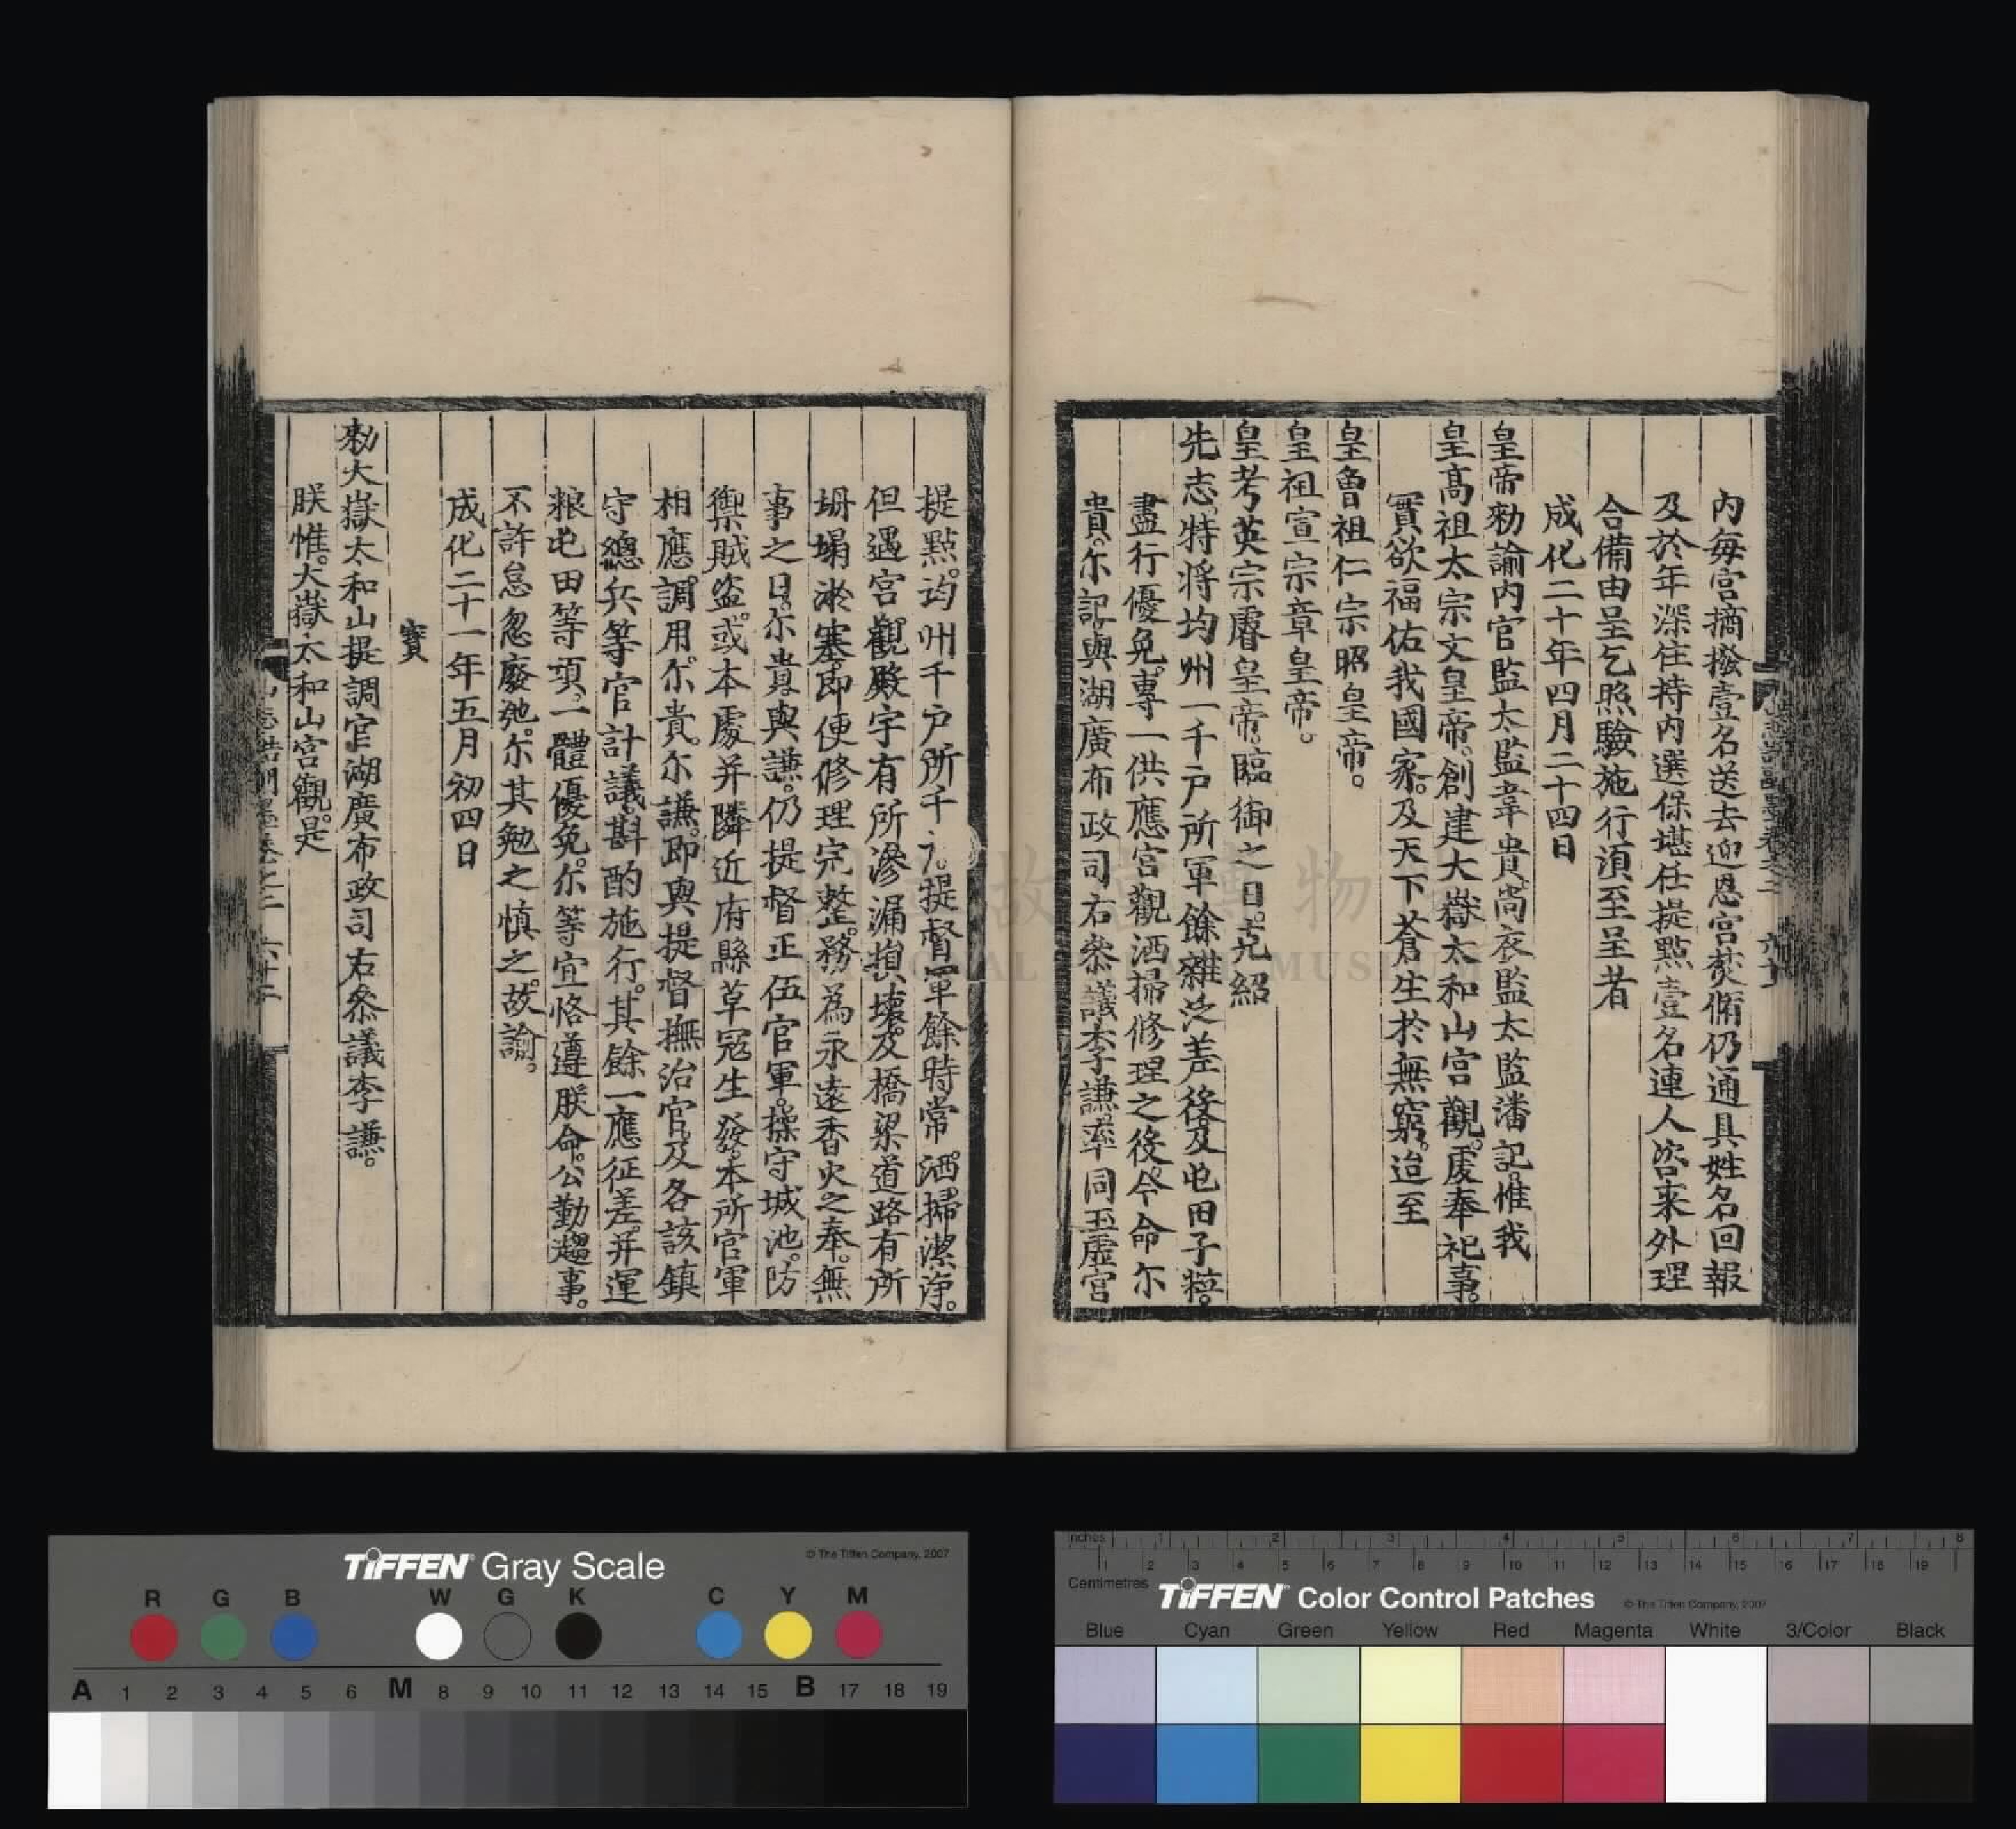 內每宮摘撥壹名送去迎恩宮焚脩仍通具姓名回報
及於年深住持內選保堪任提點壹名連人咨来外理
合備由呈乞照驗施行湏至呈者
成化二十年四月二十四日
皇帝勑諭内官監太監韋貴尚衣監太監潘記惟我
皇髙祖太宗文皇帝。創建大嶽太和山宮觀。䖍奉祀事。
實欲福佑我國家。及天下蒼生於無窮。迨至
皇曾祖仁宗昭皇帝。
皇祖宣宗章皇帝。
皇考英宗睿皇帝。臨御之日。克紹
先志。特将均州一千户所軍餘雜泛差後及屯田子粒。
盡行優免。專一供應宮觀洒掃修理之後。今命尔
貴。尔記。與湖廣布政司右叅議李謙。率同玉虛宮
提點。均州千户所千户。提督軍餘時常。洒掃潔淨。
但遇宮觀殿宇有所滲漏損壞。及橋梁道路有所
坍塌淤塞。即便修理完整。務為永遠香火之奉。無
事之日。尔貴與謙。仍提督正伍官軍。操守城池。防
禦賊盗。或本處并隣近府縣草冦生發。本所官軍
相應調用。尔貴。尔謙。即與提督撫治官。及各該鎮
守總兵等官計議。斟酌施行。其餘一應征差。并運
粮屯田等項。一體優免。尔等宜恪遵朕命。公勤趨事。
不許怠忽廢弛。尔其勉之慎之。故諭。
成化二十一年五月初四日
寳
勑大嶽太和山提調官湖廣布政司右叅議李謙。
朕惟。大嶽太和山宮觀。是
TIFFEN Gray Scale
© The Tiffen Company, 2007
R G B W G K C Y M
A 1 2 3 4 5 6 M 8 9 10 11 12 13 14 15 B 17 18 19
Inches 1 2 3 4 5 6 7 8
1 2 3 4 5 6 7 8 9 10 11 12 13 14 15 16 17 18 19
Centimetres
TIFFEN Color Control Patches
© The Tiffen Company, 2007
Blue Cyan Green Yellow Red Magenta White 3/Color Black